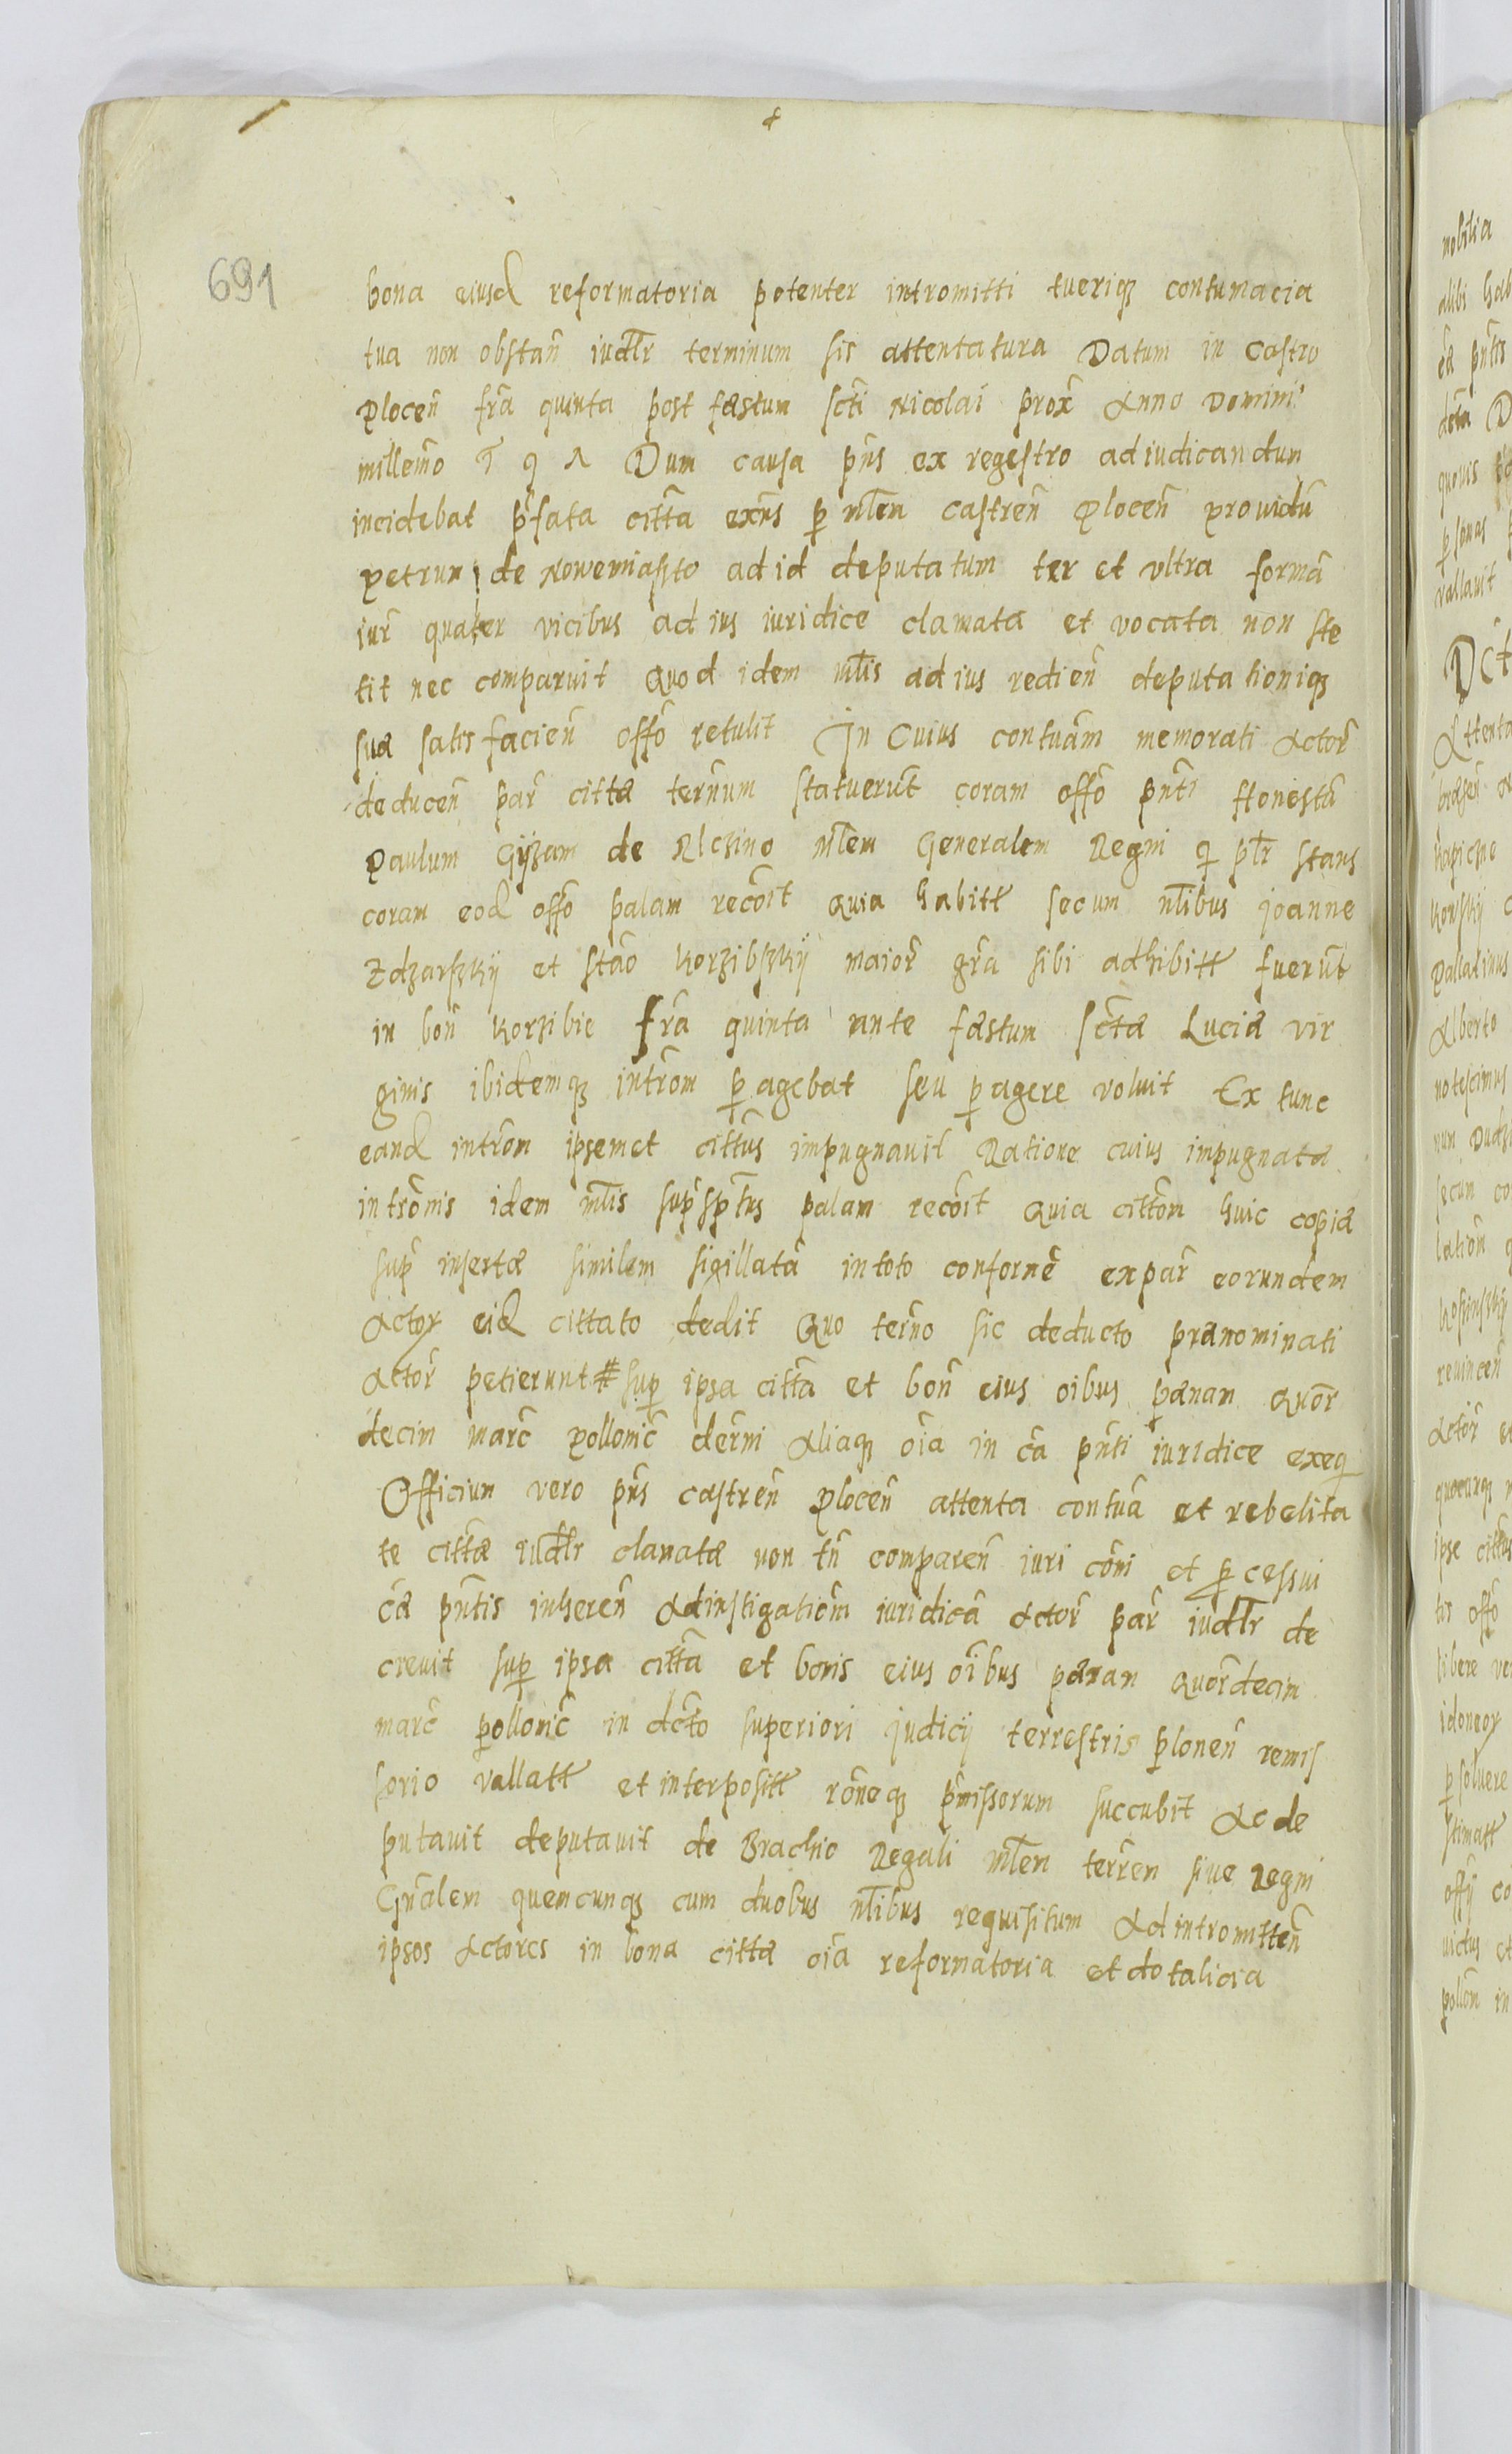 691
bona eiusd reformatoria potenter intromitti tueriq3 contumacia
tua non obstan̄ iudl̄r terminum sis attentatura Datum in castro
Plocen̄ fr̄a quinta post fæstum sc̄ti Nicolai prox̄ Anno Domini
millem̄o Dum causa pn̄s ex regestro adiudicandum
incidebat p̄fata citt̄a ex̄ns p mlem̄ castren̄ Plocen̄ prouidū
Petrum de Nowemiasto ad id deputatum ter et vltra formā
iur̄ quater vicibus ad ius iuridice clamata et vocata non ste
tit nec comparuit Quod idem ml̄is ad ius redien̄ deputationiq3
suæ satisfacien̄ offō retulit In Cuius contuām memorati Actor̄
deducen̄ par̄ cittæ tern̄um statuerūt coram offō pn̄ti Honestū
Paulum Gÿzam de Ilczino ml̄em Generalem Regni q pl̄r stans
coram eod offō palam recōit Quia habitt secum nl̄ibus Joanne
Zdzarszkÿ et stāo Korzibszkÿ maior̄ gr̄a sibi adhibitt fuerūt
in bon̄ Korzibie fr̄a quinta ante fæstum sc̄tæ Luciæ vir
ginis ibidemq3 intrōm pagebat seu pagere voluit Ex tunc
eand intrōm ipsemet citt̄us impugnauit Ratione cuius impugnatæ
intrōnis idem ml̄is sup̄sp̄tus palam recōit Quia cittōm huic copiæ
sup̄ insertæ similem sigillatā in toto conformē ex par̄ eorundem
Actor eid cittato dedit Quo tern̄o sic deducto prænominati
Actor̄ petierunt # sup ipsa citt̄a et bon̄ eius oībus pænam Quor̄
decim marc̄ Pollonic̄ der̄ni Aliaq3 oīa in cā pn̄ti iuridice exeq
Officium vero pn̄s castren̄ Plocen̄ attenta contuā et rebelita
te citt̄æ iudl̄r clamatæ non tn̄ comparen̄ iuri cōni et pcessui
cæ pn̄tis inheren̄ Ad instigatiōm iuridicā Actor̄ par̄ iudl̄r de
creuit sup ipsa citt̄a et bonis eius oībus pænam Quor̄decim
marc̄ Pollonic̄ in dc̄to superiori judicij terrestris Plonen̄ remis
sorio vallatt et interpositt rōneq3 p̄missorum succubit Ac de
putauit deputauit de Brachio Regali ml̄em terr̄em siue Regni
Gn̄alem quemcunq3 cum duobus nl̄ibus requisitum Ad intromitten̄
ipsos Actores in bona cittæ oīa reformatoria et dotalicia